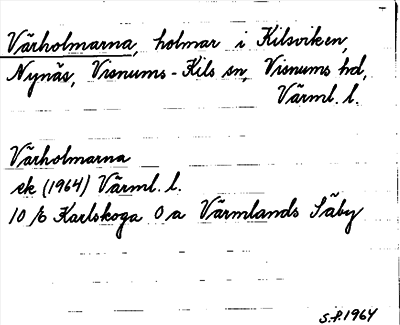 Värholmarna, holmar i Kilsviken,
Nynäs, Visnums-Kils sn, Visnums hd,
Värml. l.
Värholmarna
ek (1964) Värml. l.
10 E Karlskoga 0 a Värmlands Säby
S.P. 1964